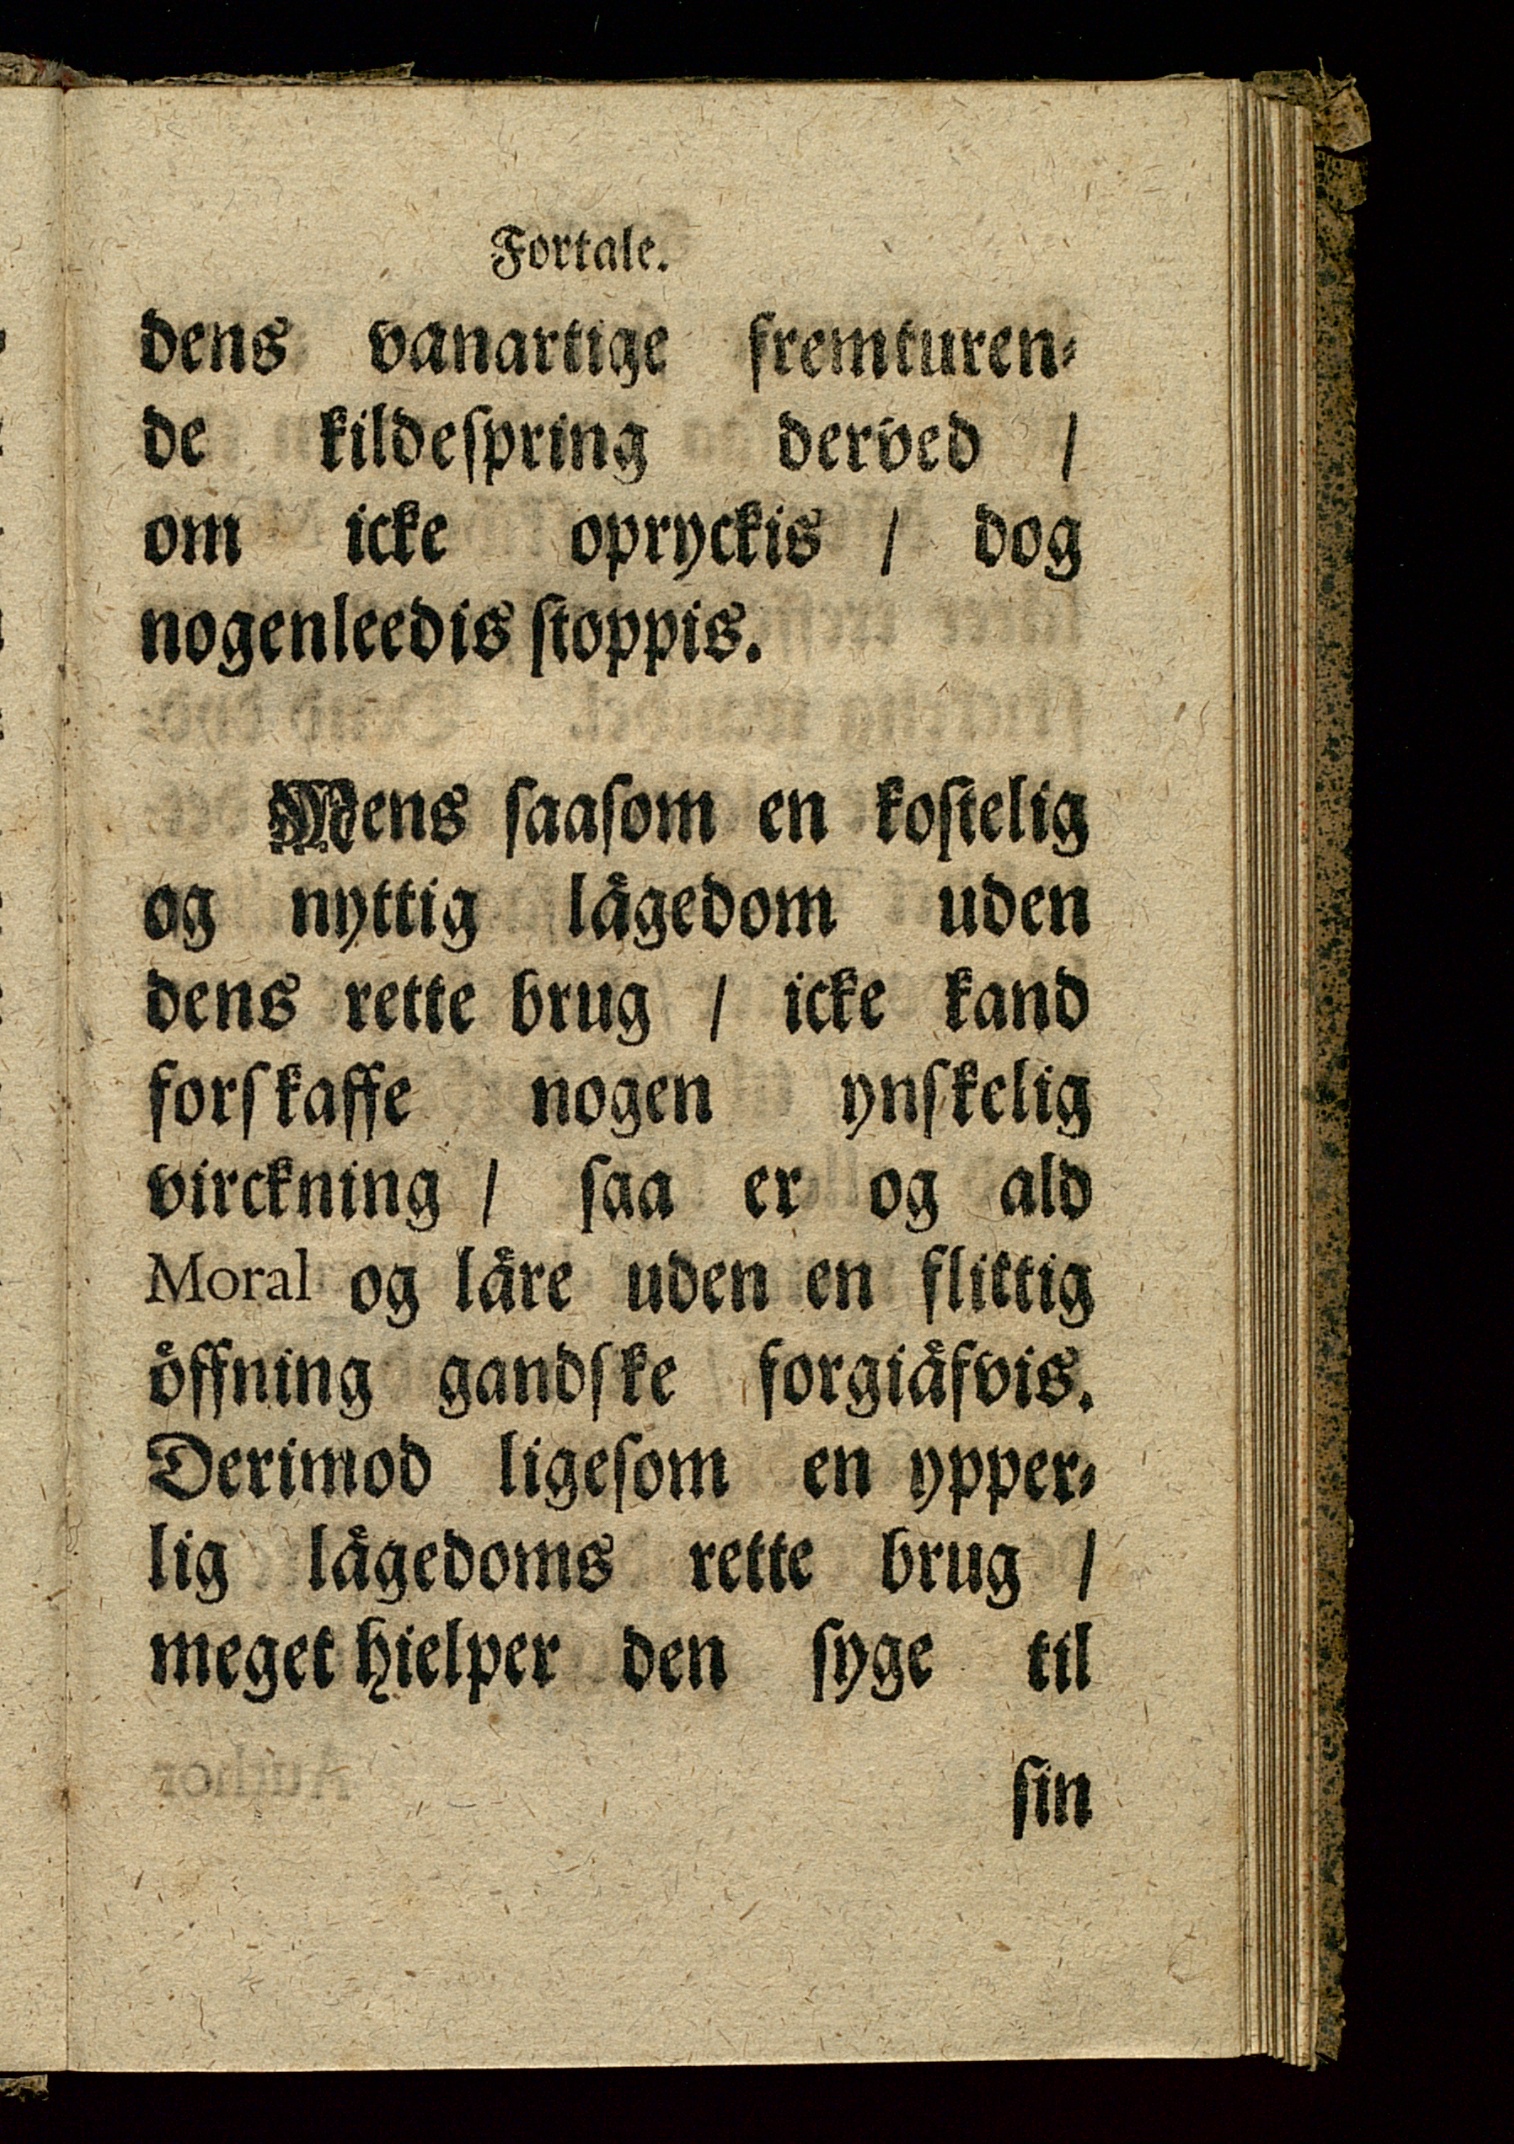 Fortale.
dens vanartige fremturen⸗
de kildeſpring derved /
om icke opryckis / dog
nogenleedis ſtoppis.
Mens ſaaſom en koſtelig
og nyttig laͤgedom uden
dens rette brug / icke kand
forſkaffe nogen ynſkelig
virckning / ſaa er og ald
Moral og laͤre uden en flittig
oͤffning gandſke forgiaͤfvis.
Derimod ligeſom en ypper⸗
lig laͤgedoms rette brug /
meget hielper den ſyge til
ſin